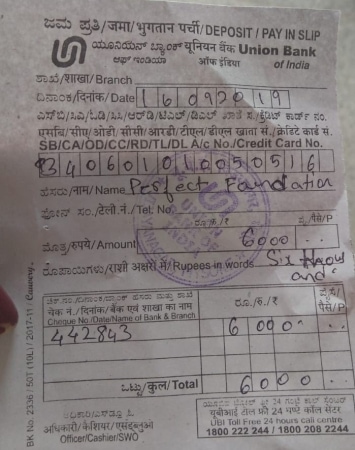 ಜಮ ಪ್ರತಿ/जमा/भुगतान पर्ची/DEPOSIT / PAY IN SLIP
ಯೂನಿಯನ್ ಬ್ಯಾಂಕ್ यूनियन बैंक Union Bank
ಆಫ್ ಇಂಡಿಯಾ ऑफ इंडिया of India
ಶಾಖೆ/शाखा/Branch
ದಿನಾಂಕ/दिनांक/Date 16092019
ಎಸ್‌ಬಿ/ಸಿಎ/ಓಡಿ/
एसबी/सीए/ओडी/सीसी/आरडी/टीएल/डीएल खाता सं./क्रेडिट कार्ड सं.
SB/CA/OD/CC/RD/TL/DL A/c No./Credit Card No.
ಹೆಸರು/नाम/Name Perfect Foundation
ಫೋನ್ ಸಂ./टेली.नं./Tel. No. ರೂ./रु./₹ ಪೈ/पैसे/P
ಮೊತ್ತ/रुपये/Amount 6000 ..
ರೂಪಾಯಿಗಳು/राशी अक्षरों में/Rupees in words Six thousand
चेक नं./दिनांक/बैंक एवं शाखा का नाम ರೂ./रु./₹ पैसे/P
Cheque No./Date/Name of Bank & Branch
442843 6000 ..
ಒಟ್ಟು/कुल/Total 6000 ..
अधिकारी/कैशियर/एसडब्लूओ
Officer/Cashier/SWO
यूबीआई टोल फ्री 24 घण्टे कॉल सेंटर
UBI Toll Free 24 hours call centre
1800 222 244 / 1800 208 2244
BK No. 2336 / 50T (10L) / 2017-11